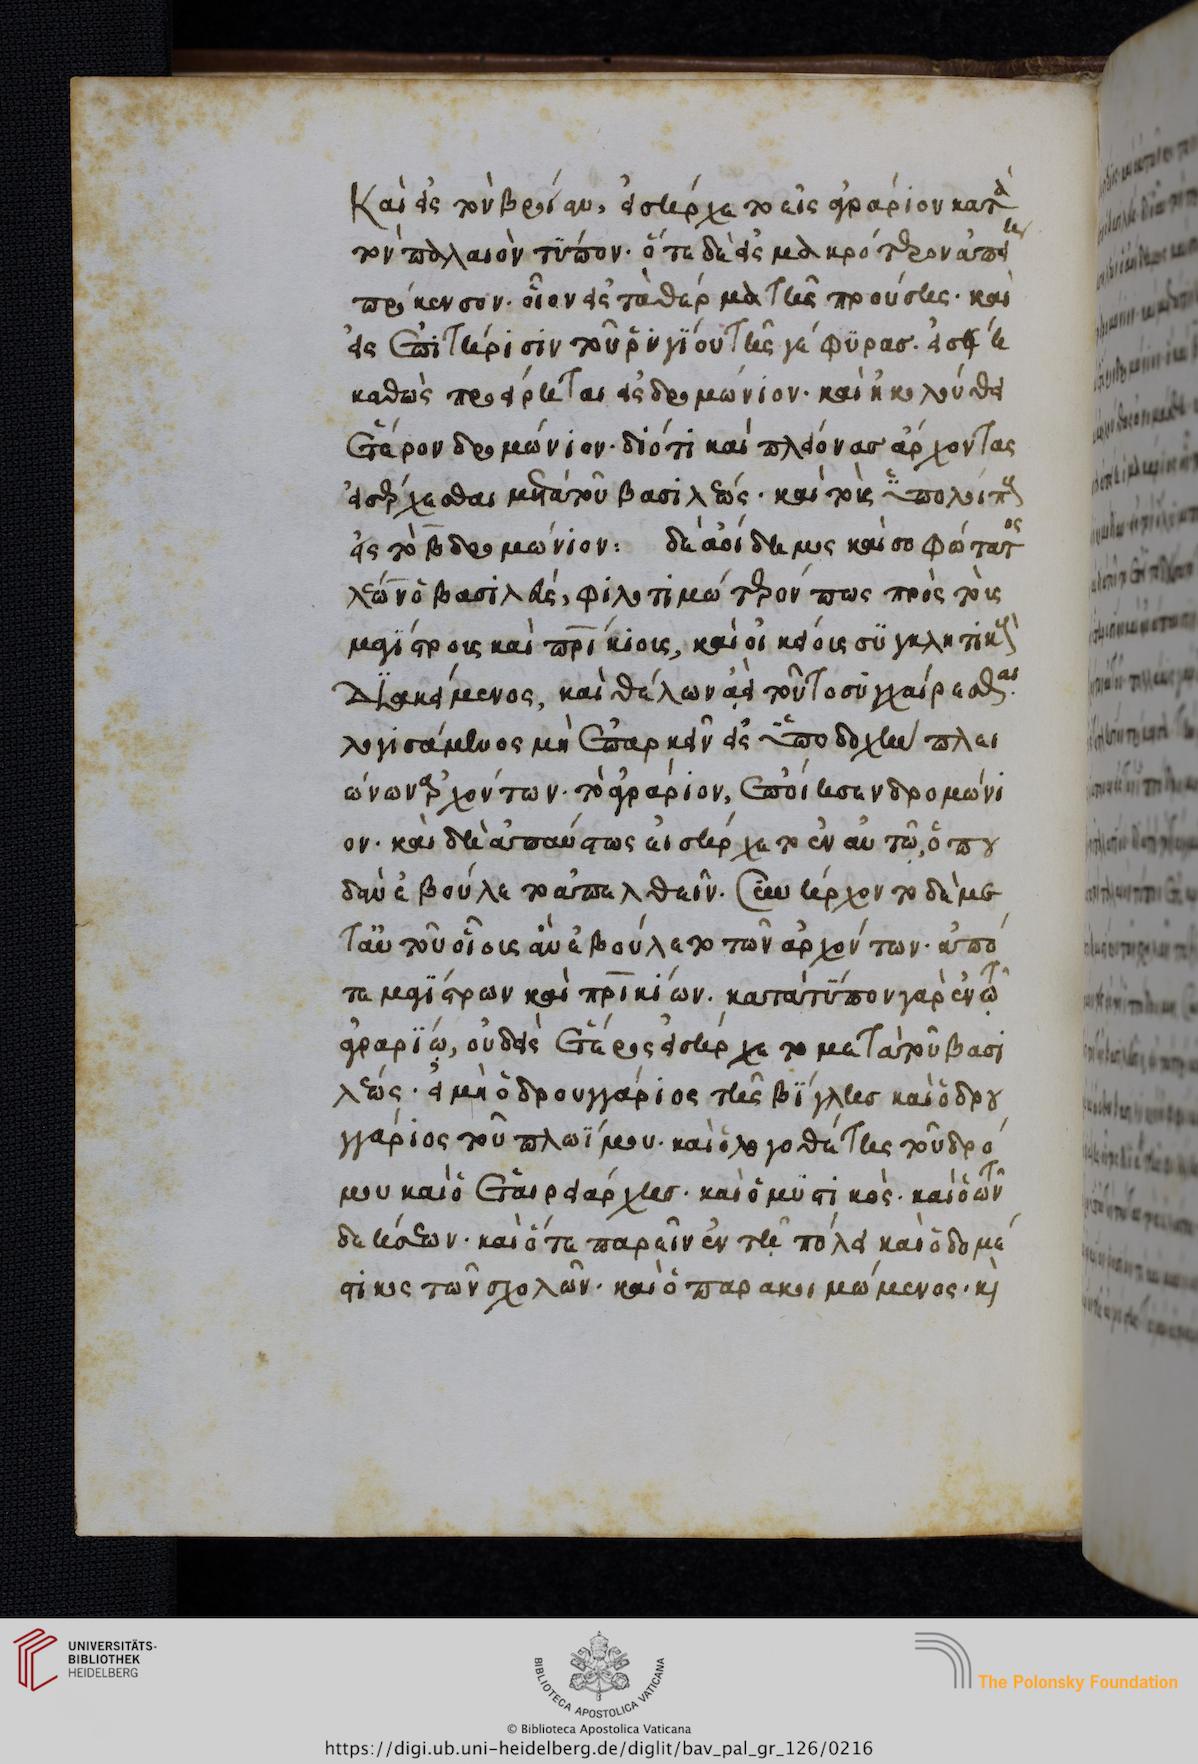 Καὶ εἰς τὸν βρύαν, εἰσήρχετο εἰς ἀγράριον κατὰ
τὸν παλαιὸν τύπον· ὅτε δὲ εἰς μακρότερον ἀπῄει
πρόκενσον· οἷον εἰς τὰ θέρμα τῆς προύσης· καὶ
εἰς ἐπιτήρισιν τοῦ ῥηγίου τῆς γεφύρας· εἰσῄει
καθὼς προείρηται εἰς δρομώνιον· καὶ ἠκολούθει
ἕτερον δρομώνιον· διότι καὶ πλείονας ἄρχοντας
εἰσέρχεσθαι μετὰ τοῦ βασιλέως· καὶ τοὺς ὑπολοίπους
εἰς τὸ β̅ δρομώνιον: δὲ ἀοίδιμος καὶ σοφώτατος
λέων ὁ βασιλεὺς, φιλοτιμώτερόν πως πρὸς τοὺς
μαγίστρους καὶ πρικίους, καὶ οἰκείους συγκλητικοὺς
διακείμενος, καὶ θέλων ἀεὶ τούτο συγχαίρεσθαι·
λογισάμενος μὴ ἐπαρκεῖν εἰς ὑποδοχὴν πλει
ώνων ἀρχόντων· τὸ ἀγράριον, ἐποίησεν δρομώνι
ον· καὶ διαπαντὸς εἰσήρχετο ἐν αὐτῷ, ὅπου
δἂν ἐβούλετο ἀπελθεῖν. Συνήρχοντο δὲ με
τ' αὐτοῦ οἵους ἂν ἐβούλετο τῶν ἀρχόντων· ἀπό
τε μαγίστρων καὶ πρικίων. κατὰ τύπον γὰρ ἐν τῷ
ἀγραρίῳ, οὐδεὶς ἕτερος εἰσήρχετο μετὰ τοῦ βασι
λέως· εἰ μὴ ὁ δρουγγάριος τῆς βίγλης καὶ ὁ δρου
γγάριος τοῦ πλωΐμου· καὶ ὁ λογοθέτης τοῦ δρό
μου καὶ ὁ ἑταιρειάρχης· καὶ ὁ μυστικὸς· καὶ ὁ τῶν
δεήσεων· καὶ ὅτε παρεῖν ἐν τῇ πόλει καὶ ὁ δομέ
στικος τῶν σχολῶν· καὶ ὁ παρακοιμώμενος· κὶ
UNIVERSITÄTS-
BIBLIOTHEK
HEIDELBERG
BIBLIOTECA APOSTOLICA VATICANA
The Polonsky Foundation
© Biblioteca Apostolica Vaticana
https://digi.ub.uni-heidelberg.de/diglit/bav_pal_gr_126/0216